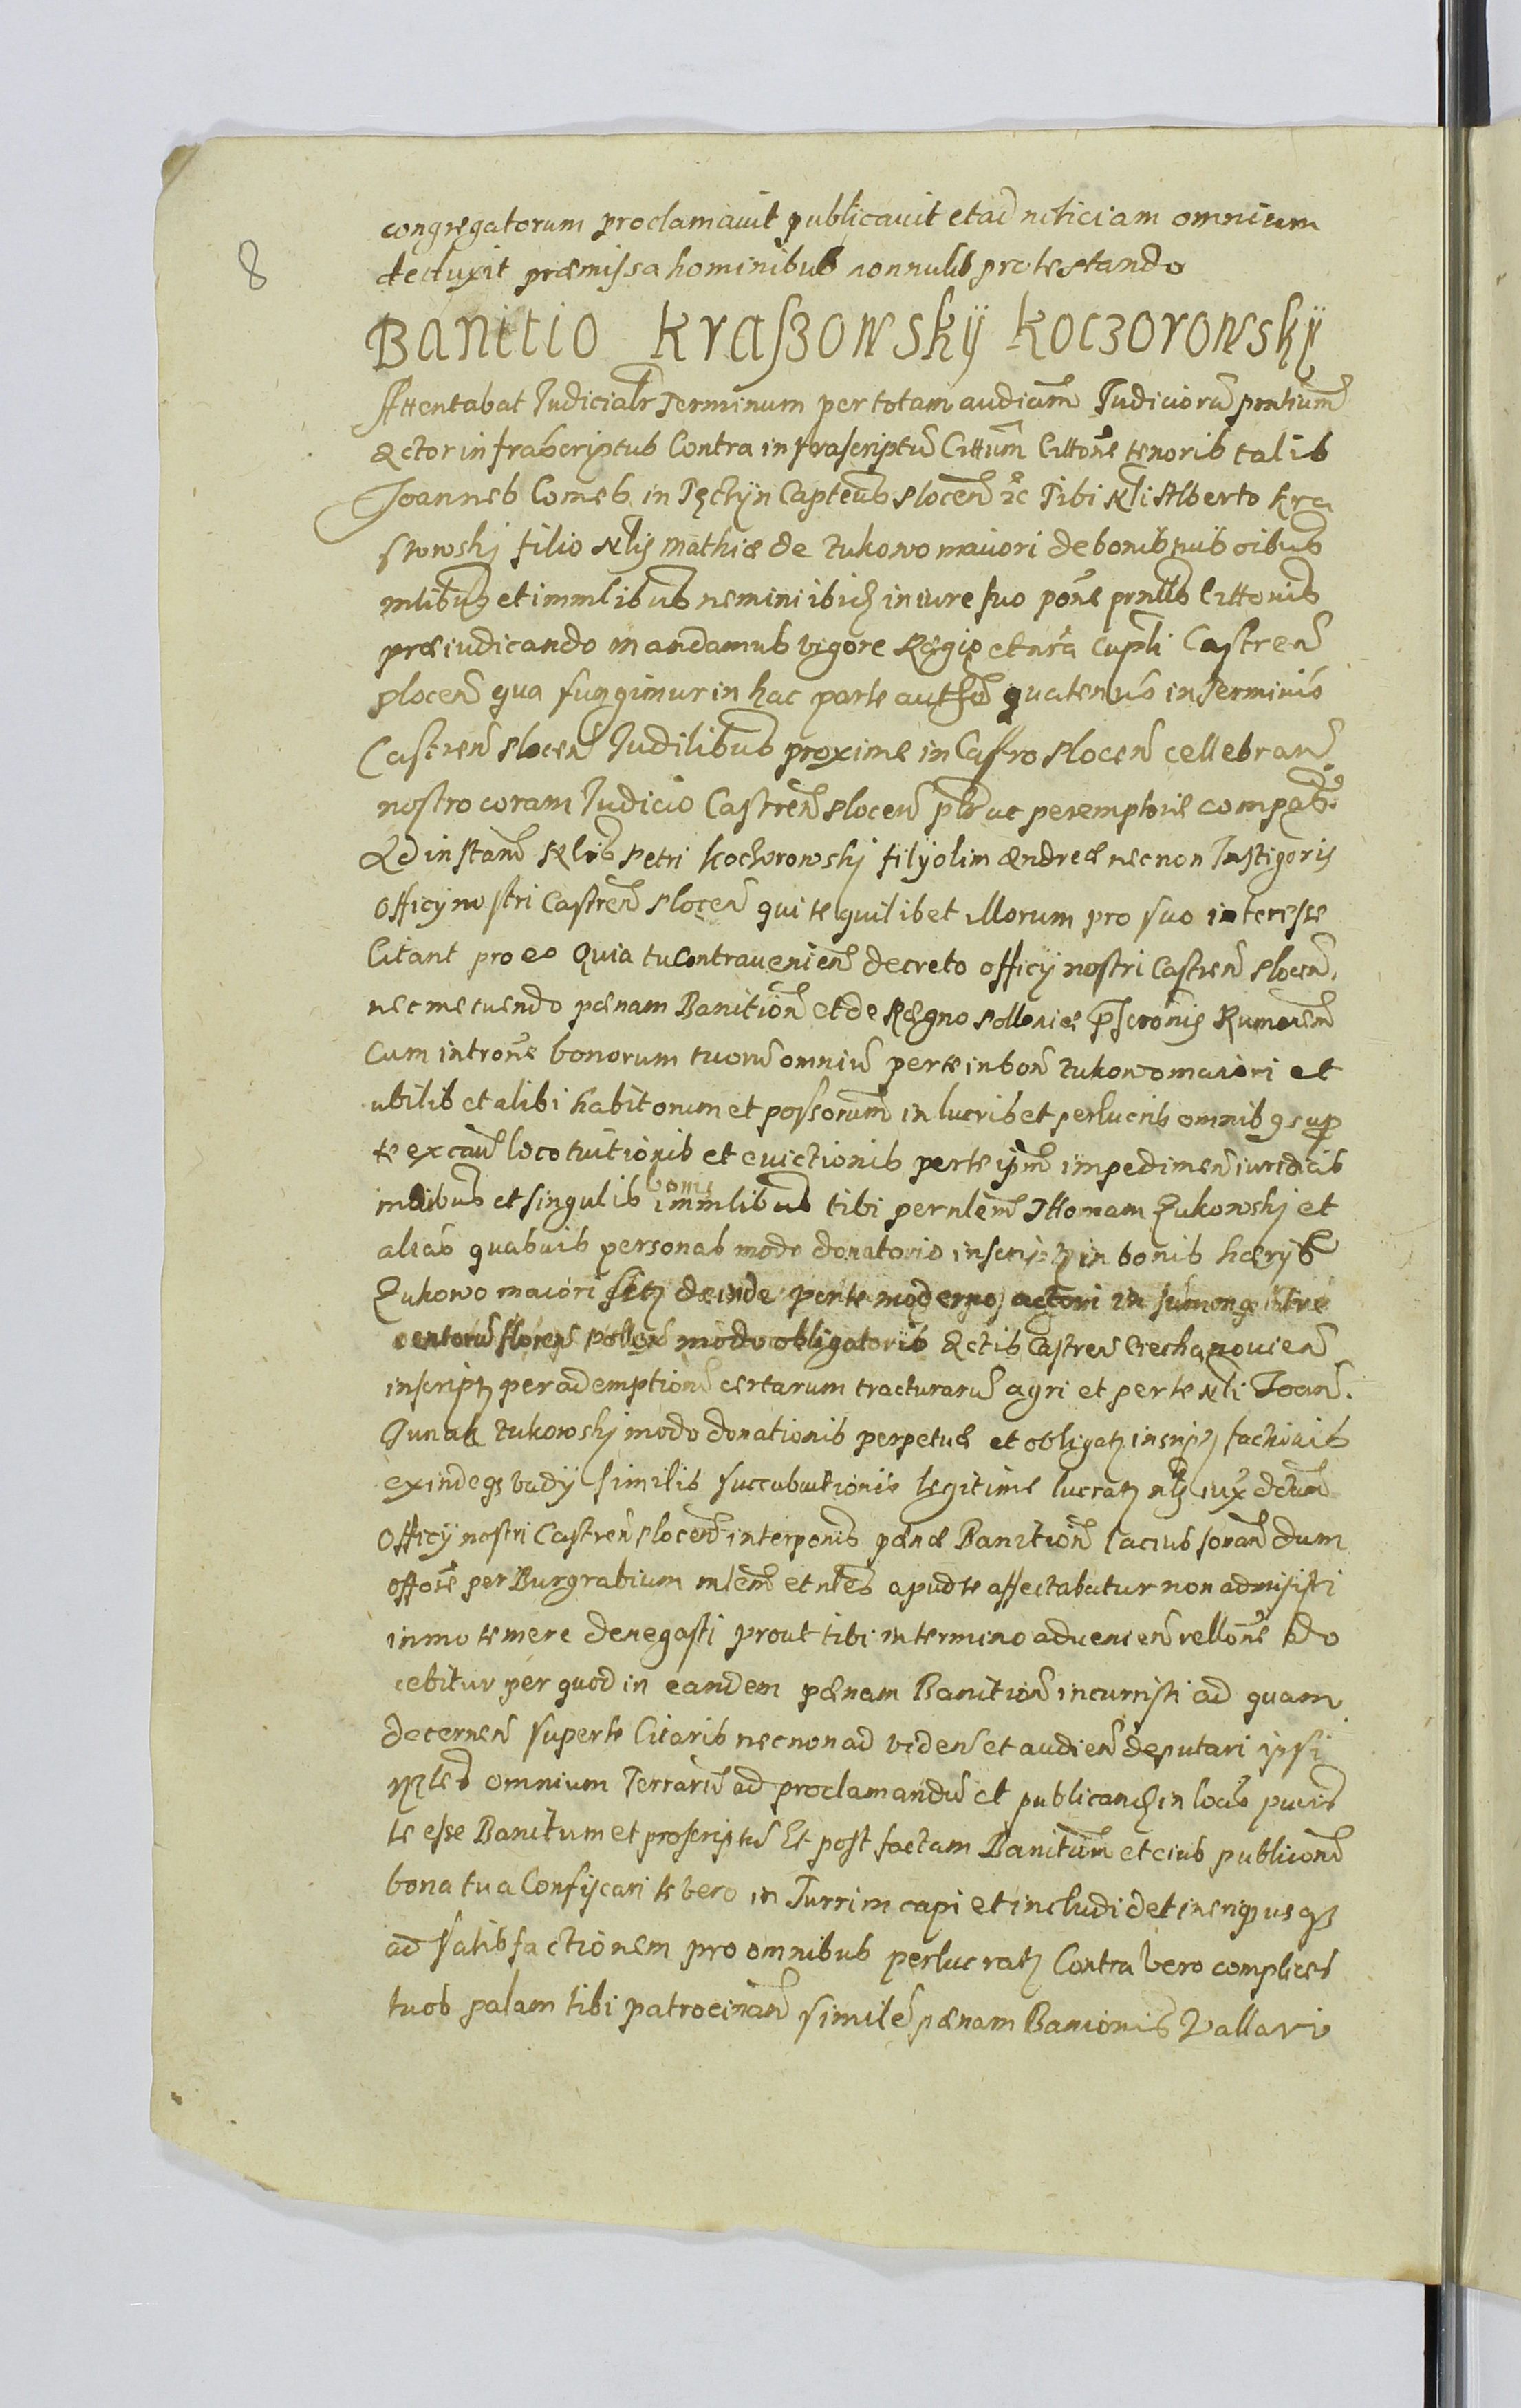 8
congregatorum proclamavit publicavit et ad noticiam omnium
deduxit præmissa hominibus nonnulis protestando
Banitio Kraszowskÿ Koczorowskÿ
Attentabat Judicialr Terminum per totam audicm̃ Judicioru pntium
Actor infrascriptus Contra infrascriptũ Cittum Cittone tenoris talis
Joannes Comes in Tęchÿn Capteus Plocen̄ etc Tibi Nli Alberto Kra
szowskj filio Nlis Mathiæ de Zukowo maiori de bonis tuis oibus
mlibus et immlibus nemini ibidz in iure suo pone pnllb Cittonis
præiudicando mandamus vigore Regio et nra Capli Castren̄
Plocen̄ qua fungimur in hac parte autho quatenus in Terminis
Castren̄ Plocen̄ Judilibus proxime in Castro Plocen̄ cellebran̄
nostro coram Judicio Castren̄ Plocen̄ plr ac peremptorie compar
Ad instan̄ Nlis Petri Koczorowskj filÿ olim Andreæ necnon Instigoris
Officÿ nostri Castren̄ Plocen̄ qui te quilibet illorum pro suo interesse
Citant pro eo Quia tu Contravenien̄ decreto officÿ nostri Castren̄ Plocen̄
nec metuendo pœnam Banition̄ et de Regno Polloniæ
Cum introne bonorum tuorũ omniũ per te in bon̄ Zukowo maiori et
ubilib et alibi habitorum et possorum in lucris et perlucris omnibg sup
te ex cau loco tuitionis et evictionis per te ipm̄ impedimen̄ iuredicis
mlibus et singulis bonis immlibus tibi per nlem̄ Thomam Zukowskj et
alias quasvis personas modo donatorio inscriptz in bonis hæryb
Zukowo maiori sitz deinde per te moderno actori in sumong tre
centoru floren̄ Pollen̄ modo obligatoriis Actis Castren̄ Ciechanovien̄
inscriptz per ademption̄ certarum tracturaru agri et per te Nli Joan̄
Junak Zukowskj modo donationis perpetuæ et obligatz inscriptz factionis
exindeqz vadÿ similis succubutionis legitime lucratz
Officÿ nostri Castren̄ Plocen̄ interponis pœnæ Banition̄ lacius sonan̄ dum
offore per Burgrabium mlem̄ et nles apud te affectabatur non admisisti
inmo temere denegasti prout tibi in termino advenien̄ rellone do
cebitur per quod in eandem pœnam Banition̄ incurristi ad quam
decernen̄ super te Citaris necnon ad viden̄ et audien̄ deputari ipsi
Mles omnium Terraru ad proclamandũ et publicandz in locis pucis
te esse Banitum et proscriptũ Et post factam Banitum et eius publicon̄
bona tua Confiscari te vero in Turrim capi et includi detineriqz usqz
ad satisfactionem pro omnibus perlucratz Contra vero complices
tuos palam tibi patrocinan̄ similẽ pœnam Banionis Vallari